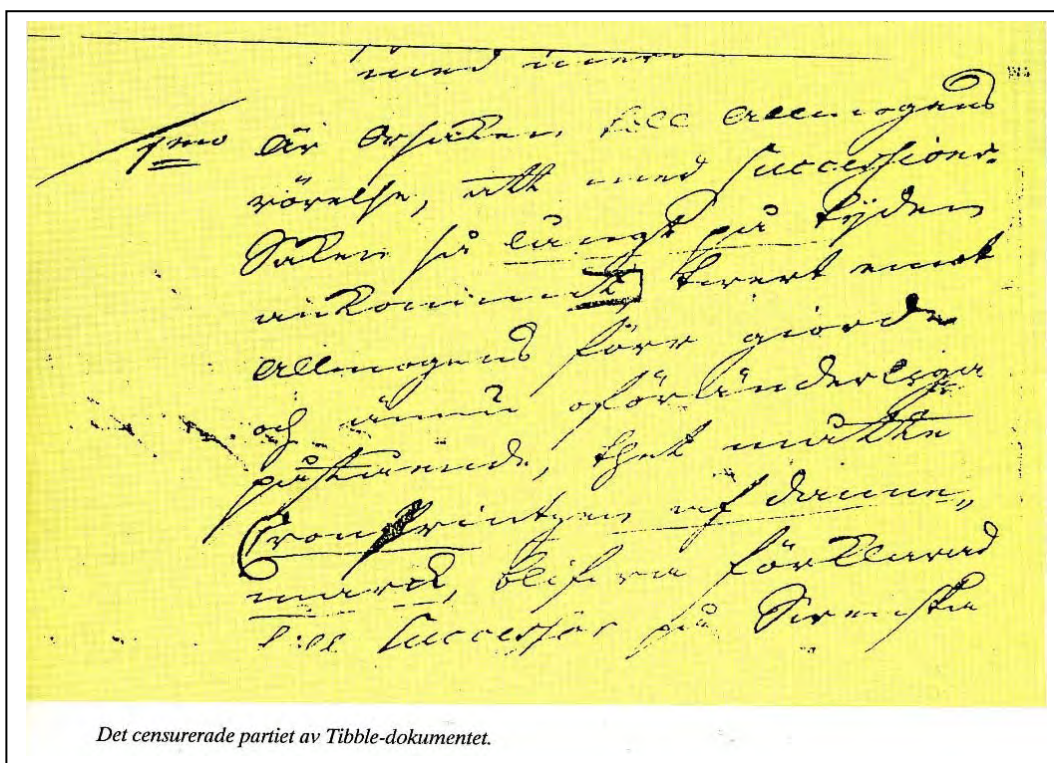 med mera
1mo Är Orsaken till Allmogens
rörelse, att med Successions-
Saken så långt på tijden
ankommit, twert emot
Allmogens förr giorde
och ännu oföränderliga
påstående, thet måtte
CronPrintzen af Danne„
marck, blifva förklarad
till Successor på Svenska
Det censurerade partiet av Tibble-dokumentet.